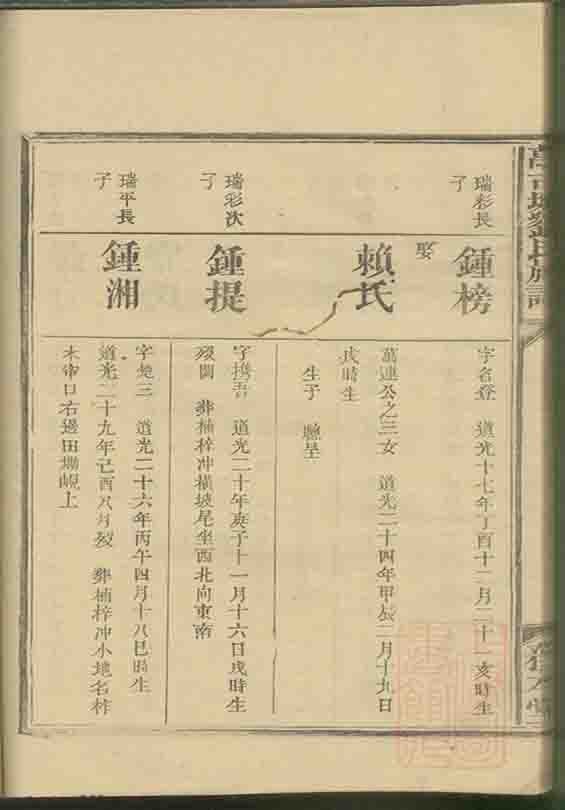 瑞彩長
子
鍾榜
字名登 道光十七年丁酉十二月二十一亥時生
娶
賴氏
萬連公之三女 道光二十四年甲辰二月十九日
戌時生
生子
瑞彩次
子
鍾提
字携吾 道光二十年庚子十一月十六日戌時生
歿闕 葬楠梓冲橫坡尾坐西北向東南
瑞平長
子
鍾湘
字楚三 道光二十六年丙午四月十八巳時生
道光二十九年己酉八月歿 葬楠梓冲小地名柞
木窄口右邊田塅峴上
氏族